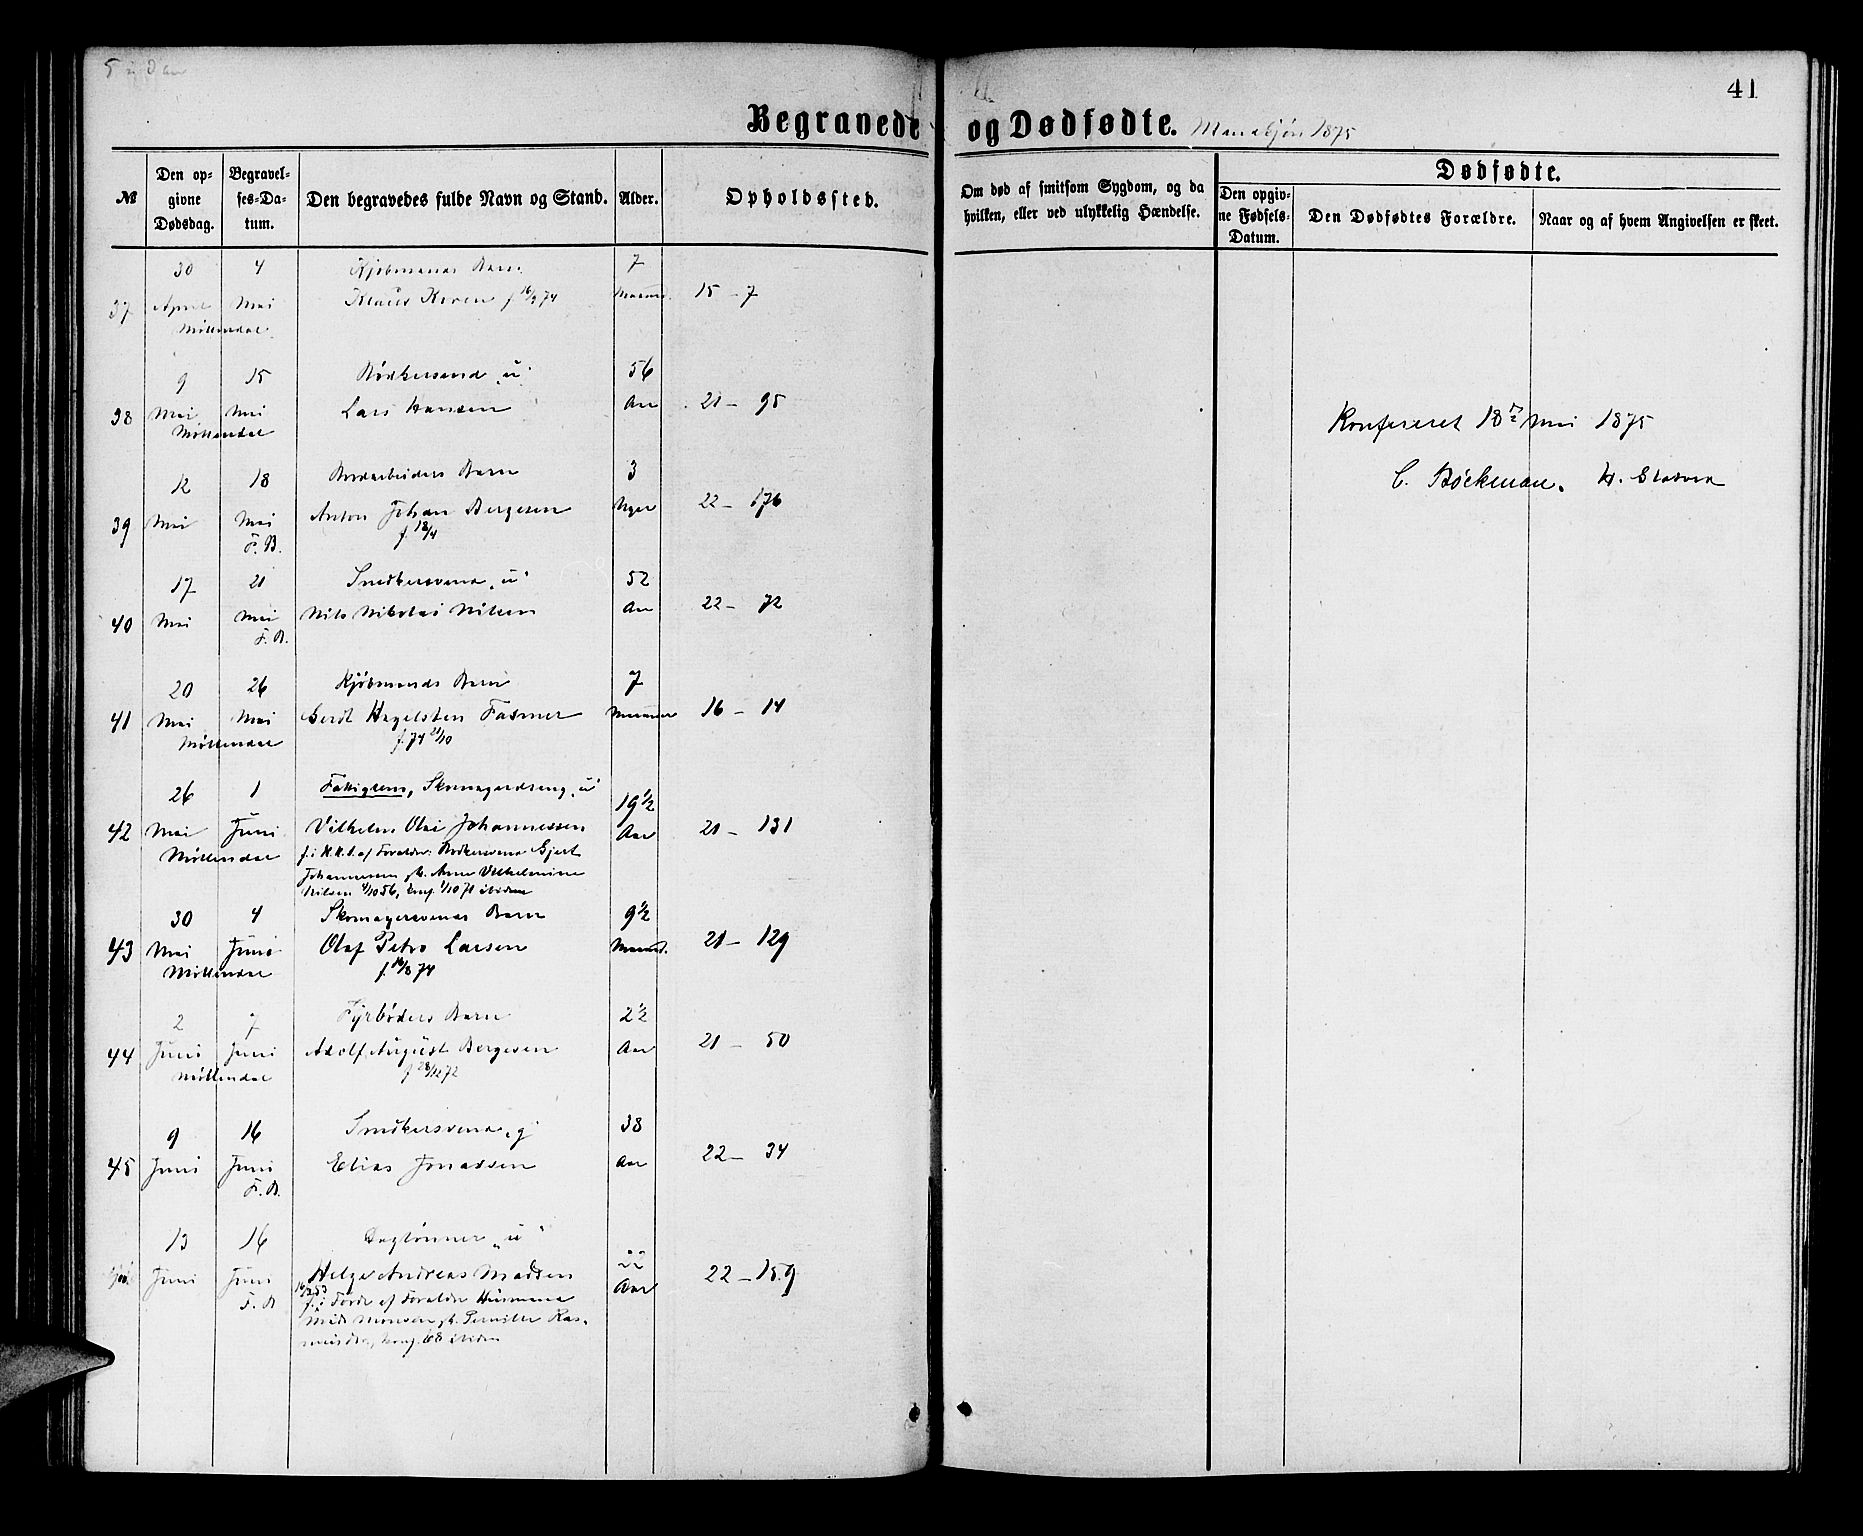 41
Begravede og Dødfødte. Mandkjøn 1875
№
Den opgivne Dødsdag.
Begravelses-Datum.
Den begravedes fulde Navn og Stand.
Alder.
Opholdssted.
Om død af smitsom Sygdom, og da hvilken, eller ved ulykkelig Hændelse.
Dødfødte.
Den opgivne Fødsels-Datum.
Den Dødfødtes Forældre.
Naar og af hvem Angivelsen er skeet.
30 4 Kjøbmands Barn 7
37 April Mai Klaus Krohn f 16/9 74 Maaned. 15 - 7
Møllendal
9 15 Bødkersvend „u" 56
38 Mai Mai Lars Hansen Aar 21 - 95
Møllendal
Konfereret 18 Mai 1875
C. Bøckman.
12 18 Bordarbeiders Barn 3
39 Mai Mai Anton Johan Bergesen Uger 22 - 176
F. B. f. 18/4
17 21 Snedkersvend „u" 52
40 Mai Mai Nils Nikolai Nilsen Aar 22 - 72
F. B.
20 26 Kjøbmands Barn 7
41 Mai Mai Gerdt Hagelsten Fasmer Maaneder 16 - 14
Møllendal f. 74 21/10
26 1 Fattiglem, Skomagerdreng „u" 19 1/2
42 Mai Juni Vilhelm Olai Johannessen Aar 21 - 131
Møllendal f. i N.K.S. af Forældre: Bødkersvend Gjert
Johannesen &amp; Anne Vilhelmine
Nilsen 4/10 56, konf. 1/10 71 ibidem
30 4 Skomagersvends Barn 9 1/2
43 Mai Juni Olaf Petro Larsen Maaned. 21 - 129
Møllendal f. 16/8 74
2 7 Fyrbøders Barn 2 1/2
44 Juni Juni Adolf August Bergesen Aar 21 - 50
Møllendal f 28/12 72
9 16 Snedkersvend „g" 38
45 Juni Juni Elias Jonassen Aar 22 - 34
F. B.
13 16 Daglønner „u" 22
Juni Juni Helge Andreas Madsen Aar 22 - 159
F. B f. i Førde af Forældre Husmand
Mads Monsen &amp; Pernille Rasmusdtr, konf. 68 ibidem